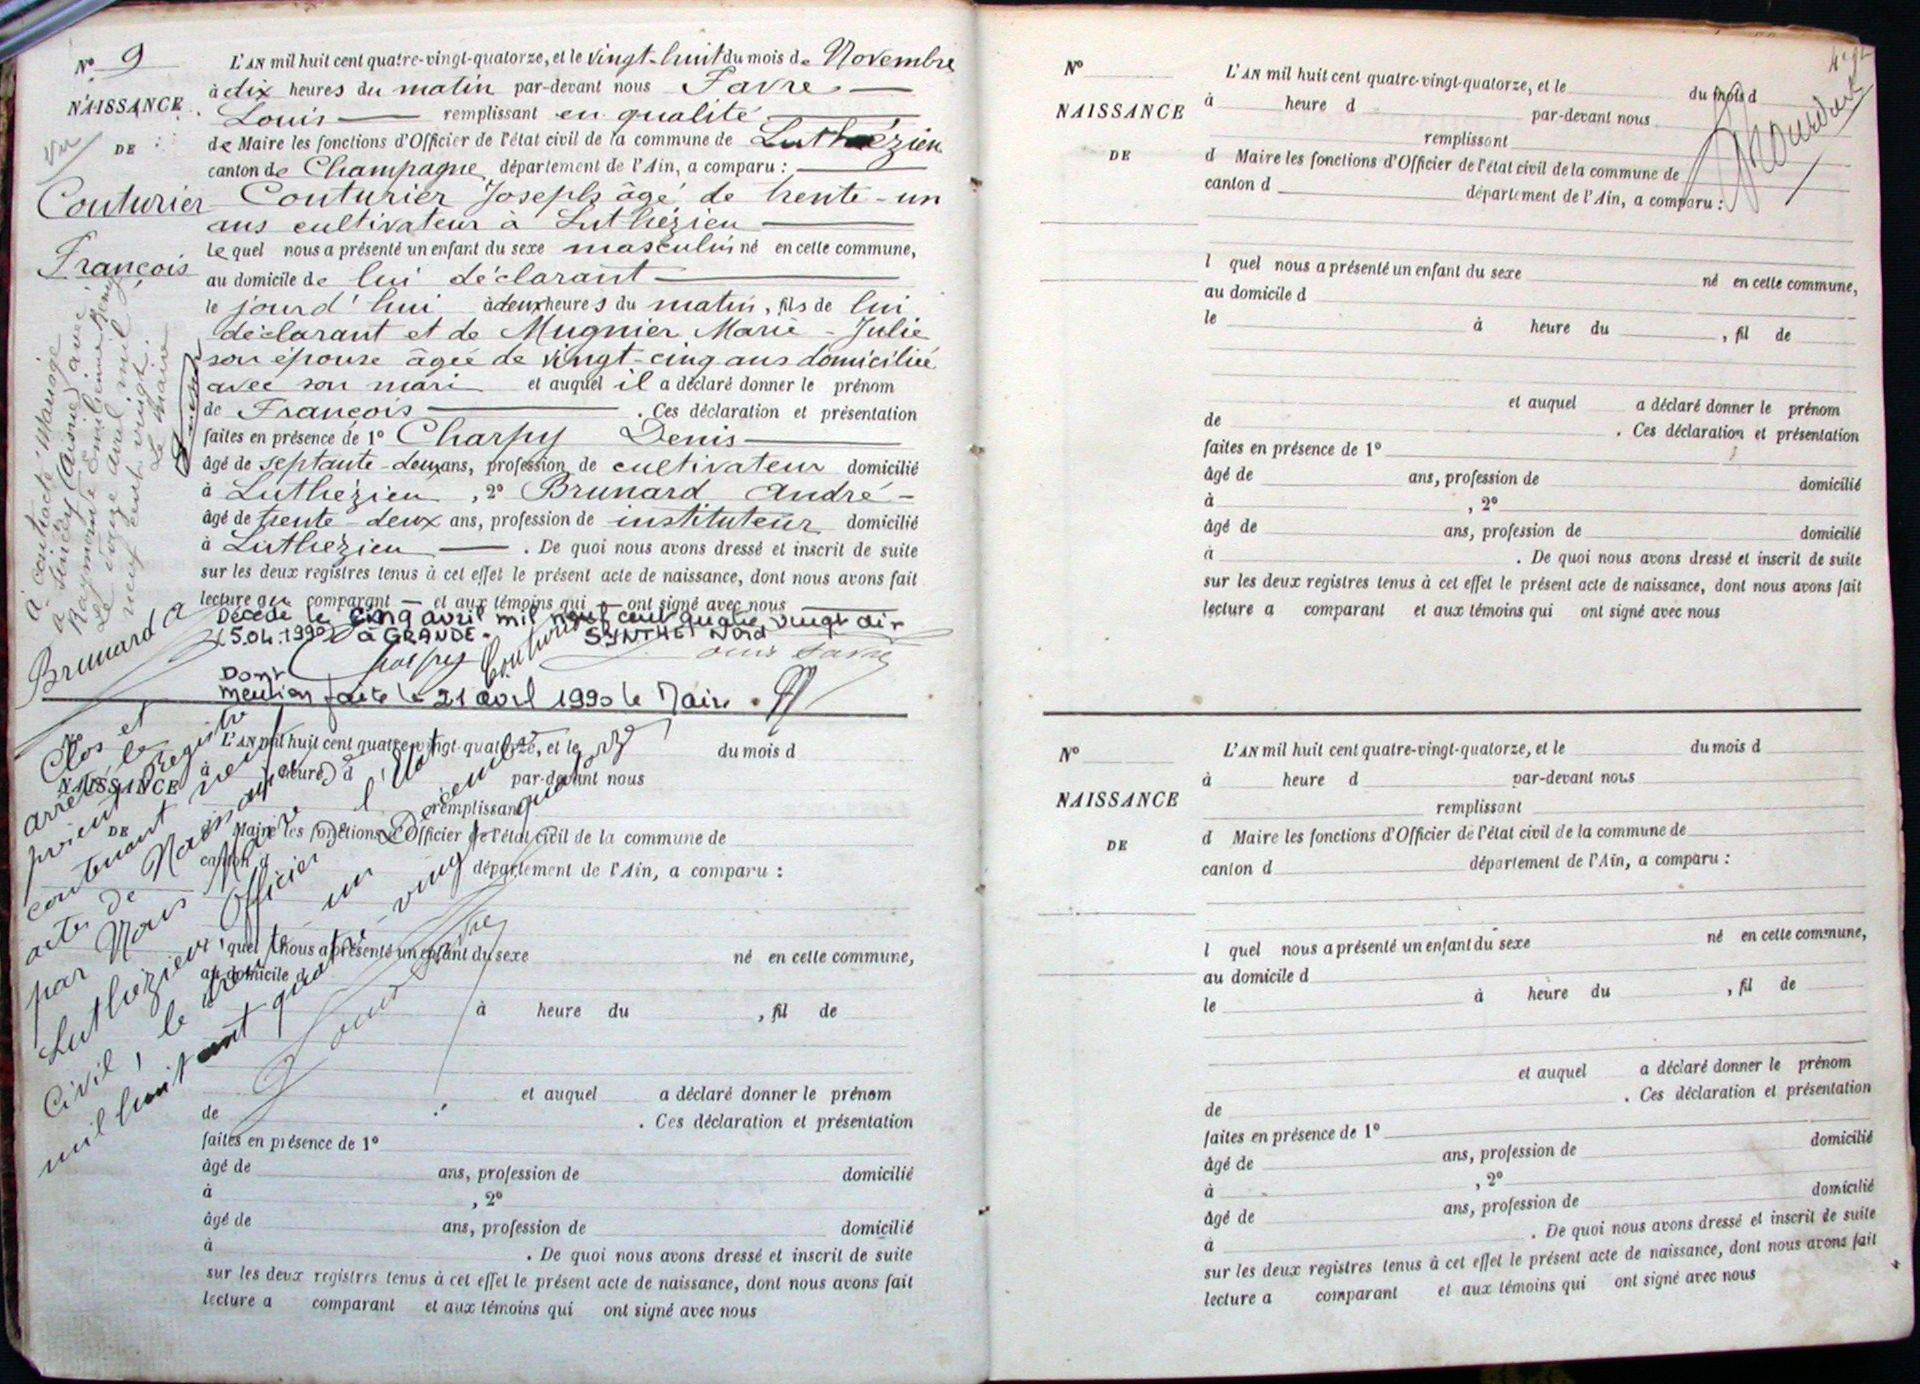 N° 9
NAISSANCE
DE :
Vu
Couturier
François
L'AN mil huit cent quatre-vingt-quatorze, et le vingt-huit du mois de Novembre
à dix heures du matin par-devant nous Favre
Louis remplissant en qualité
de Maire les fonctions d'Officier de l'état civil de la commune de Luthézieu
canton de Champagne département de l'Ain, a comparu :
Couturier Joseph âgé de trente-un
ans cultivateur à Luthézieu
Le quel nous a présenté un enfant du sexe masculin né en cette commune,
au domicile de lui déclarant
le jourd'hui à deux heures du matin, fils de lui
déclarant et de Mugnier Marie-Julie
son épouse âgée de vingt-cinq ans domiciliée
avec son mari et auquel il a déclaré donner le prénom
de François . Ces déclaration et présentation
faites en présence de 1° Charpy Denis
âgé de septante-deux ans, profession de cultivateur domicilié
à Luthézieu , 2° Brunard André
âgé de trente-deux ans, profession de instituteur domicilié
à Luthézieu . De quoi nous avons dressé et inscrit de suite
sur les deux registres tenus à cet effet le présent acte de naissance, dont nous avons fait
lecture au comparant et aux témoins qui ont signé avec nous
Décédé le cinq avril mil neuf cent quatre vingt dix
(5.04.1990) à GRANDE-SYNTHE Nord
Dont
mention faite le 21 avril 1990 le Maire.
Brunard A
Charpy
Couturier
Louis Favre
A contracté mariage
à Sinceny (Aisne) avec
Raymonde Emilienne
Le onze avril mil
neuf cent vingt.
Le Maire
Clos et
arrêté le
présent Registre
contenant neuf
actes de Naissance
par Nous Maire
Officier de l'Etat
Luthézieu,
Civil, le trente un Décembre
mil huit cent quatre-vingt quatorze
Louis Favre
N°
NAISSANCE
DE
L'AN mil huit cent quatre-vingt-quatorze, et le du mois d
à heure d par-devant nous
remplissant
d Maire les fonctions d'Officier de l'état civil de la commune de
canton d département de l'Ain, a comparu :
l quel nous a présenté un enfant du sexe né en cette commune,
au domicile d
à heure du , fil de
et auquel a déclaré donner le prénom
de . Ces déclaration et présentation
faites en présence de 1°
âgé de ans, profession de domicilié
à , 2°
âgé de ans, profession de domicilié
à . De quoi nous avons dressé et inscrit de suite
sur les deux registres tenus à cet effet le présent acte de naissance, dont nous avons fait
lecture a comparant et aux témoins qui ont signé avec nous
N°
NAISSANCE
DE
L'AN mil huit cent quatre-vingt-quatorze, et le du mois d
à heure d par-devant nous
remplissant
d Maire les fonctions d'Officier de l'état civil de la commune de
canton d département de l'Ain, a comparu :
l quel nous a présenté un enfant du sexe né en cette commune,
au domicile d
le à heure du , fil de
et auquel a déclaré donner le prénom
de . Ces déclaration et présentation
faites en présence de 1°
âgé de ans, profession de domicilié
à , 2°
âgé de ans, profession de domicilié
à . De quoi nous avons dressé et inscrit de suite
sur les deux registres tenus à cet effet le présent acte de naissance, dont nous avons fait
lecture a comparant et aux témoins qui ont signé avec nous
N°
NAISSANCE
DE
L'AN mil huit cent quatre-vingt-quatorze, et le du mois d
à heure d par-devant nous
remplissant
d Maire les fonctions d'Officier de l'état civil de la commune de
canton d département de l'Ain, a comparu :
l quel nous a présenté un enfant du sexe né en cette commune,
au domicile d
le à heure du , fil de
et auquel a déclaré donner le prénom
de . Ces déclaration et présentation
faites en présence de 1°
âgé de ans, profession de domicilié
à , 2°
âgé de ans, profession de domicilié
à . De quoi nous avons dressé et inscrit de suite
sur les deux registres tenus à cet effet le présent acte de naissance, dont nous avons fait
lecture a comparant et aux témoins qui ont signé avec nous